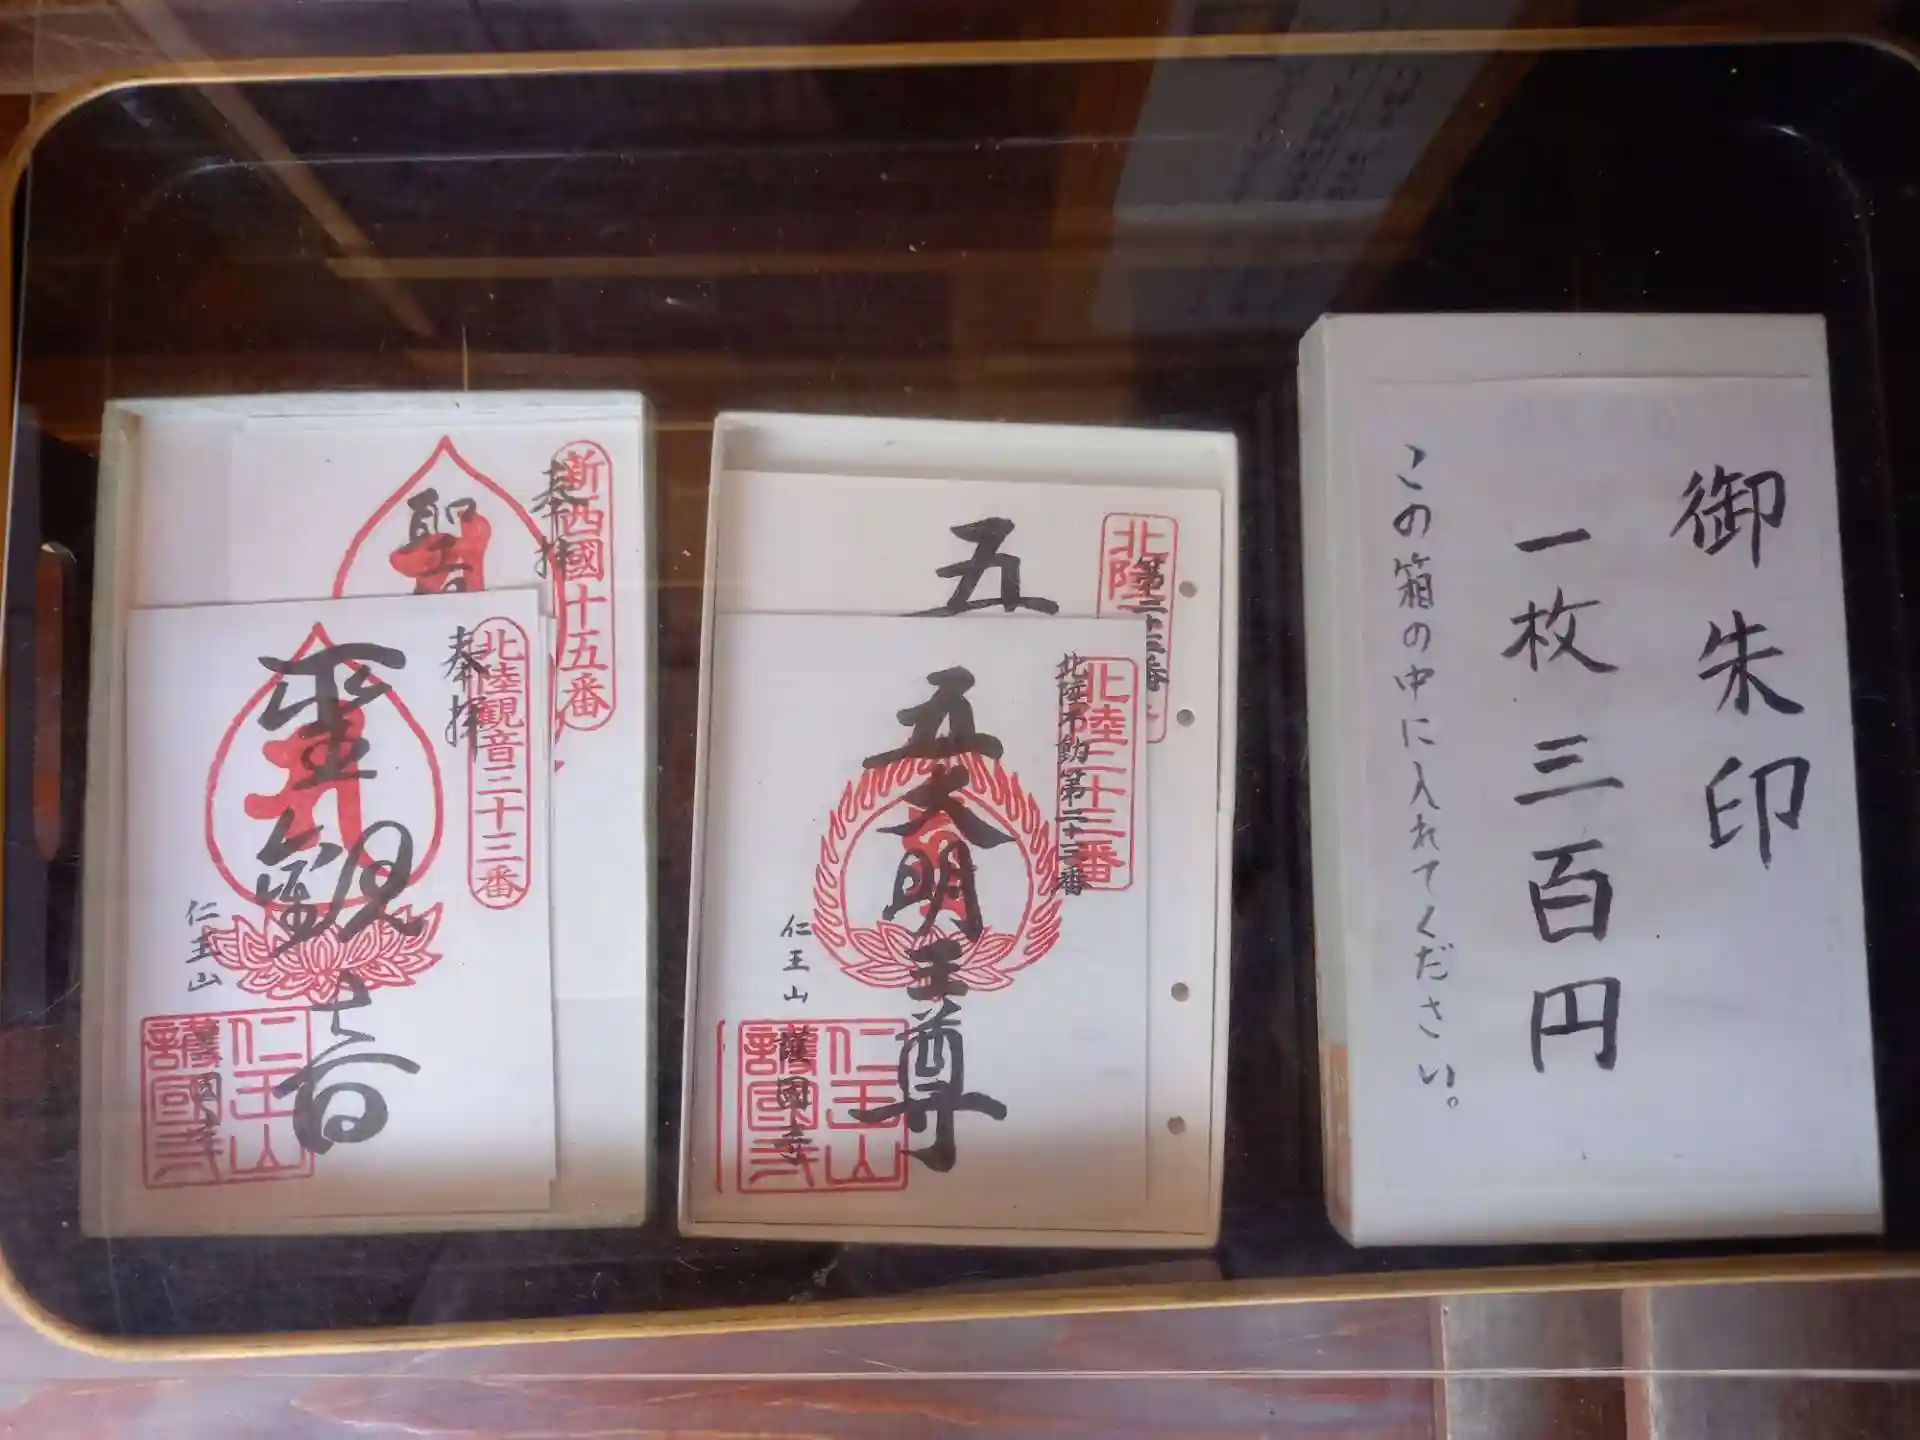 御朱印
一枚三百円
この箱の中に入れてください。
北陸
第二十三番
五
北陸三十三番
北陸不動第二十三番
五大明王尊
仁王山
護國寺
仁王山
護國寺
新西國十五番
奉拝
聖
北陸観音三十三番
奉拝
聖観音
仁王山
護國寺
仁王山
護國寺